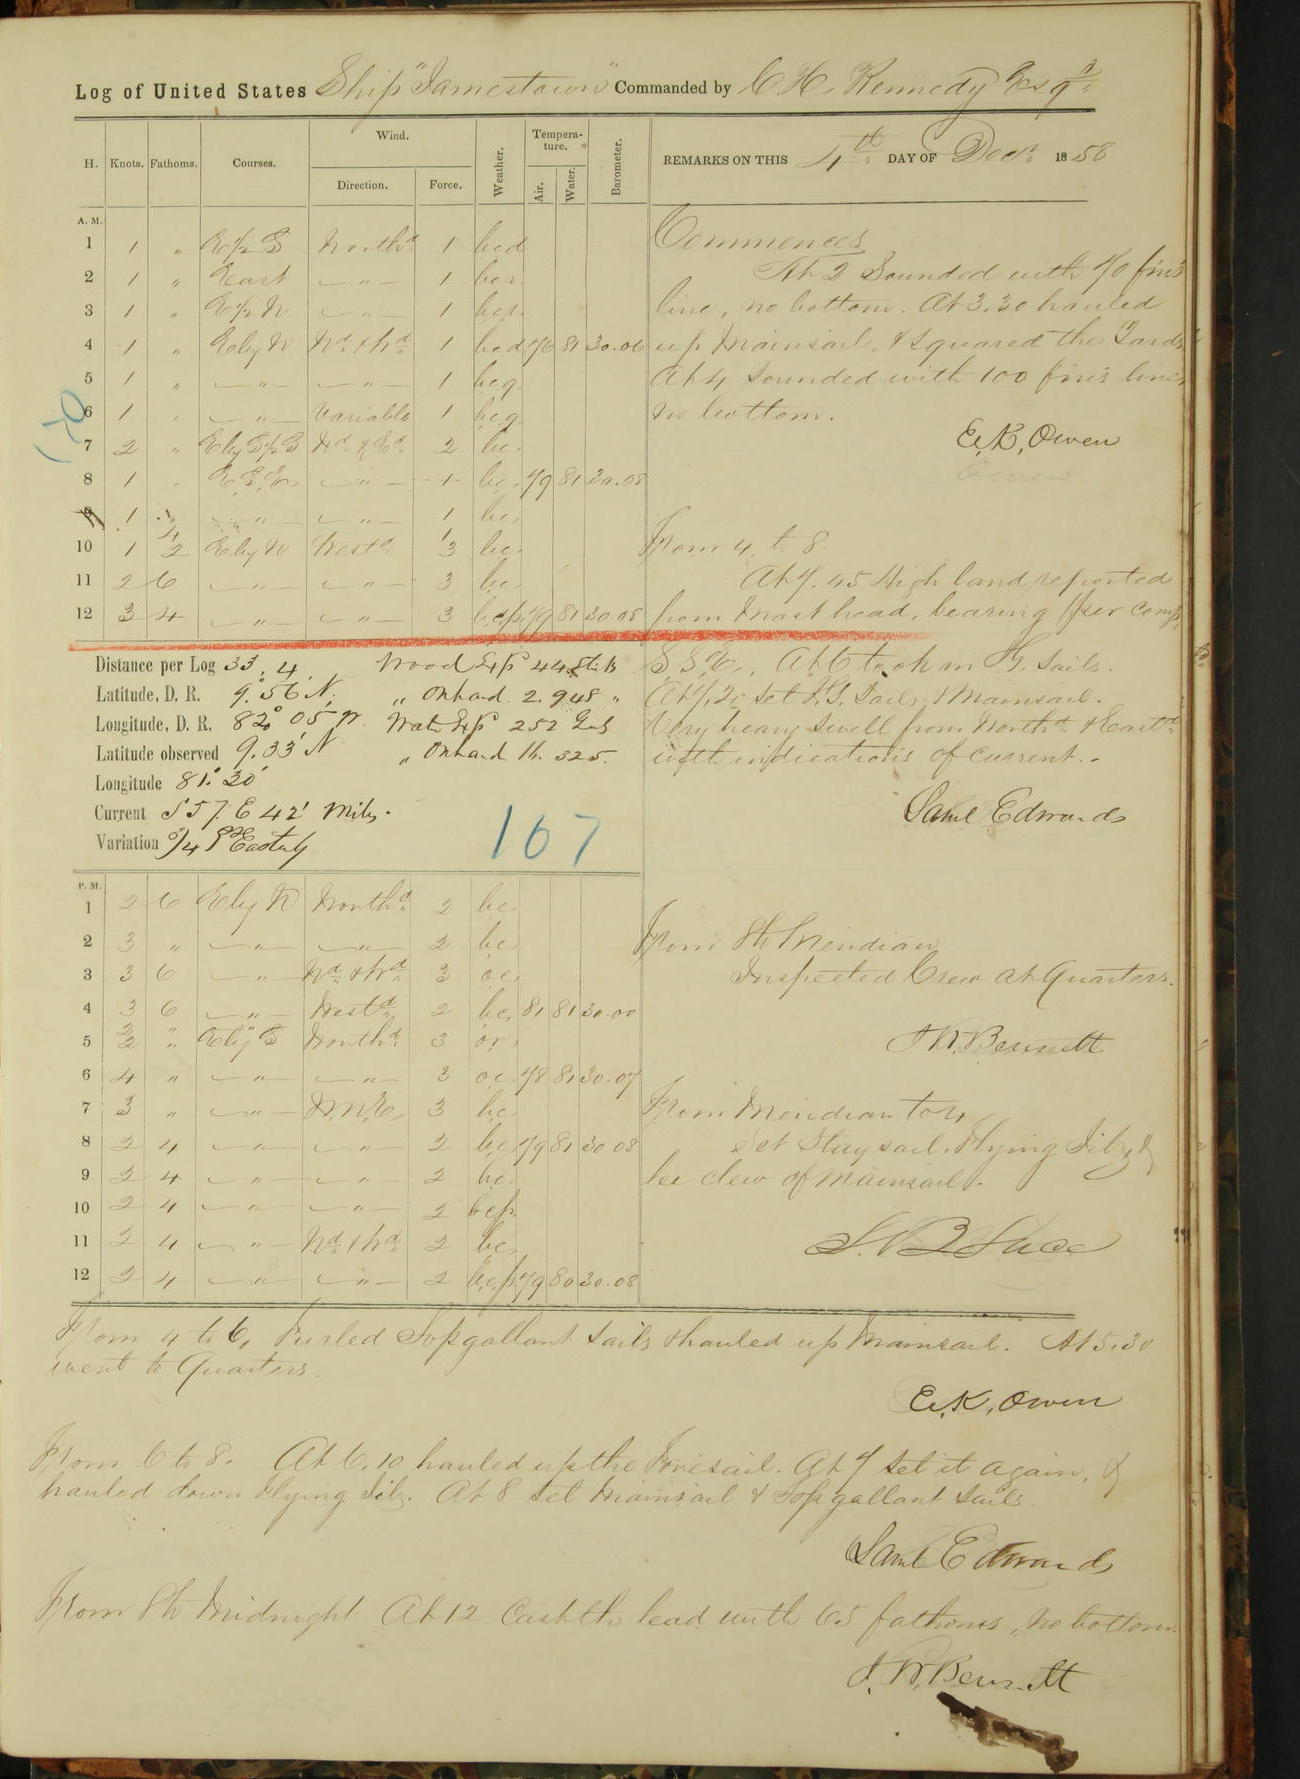 Log of United States Ship "Jamestown" Commanded by C H. Kennedy Esqr.
H. Knots. Fathoms. Courses. Wind. Direction. Force. Weather. Temperature. Air. Water. Barometer. REMARKS ON THIS 4th DAY OF Decr. 1856
A. M.
1 1 " E 1/2 S Northd. 1 bcd
2 1 " East " 1
3 1 " E 1/2 N " 1
4 1 " E by N Nd. & Wd. 1 bcd 76 81 30.06
5 1 " " " 1 bcq
6 1 " " Variable 1 bcq
7 2 " Nd. & Ed. 2 bc
8 1 " E.S.E. " 1 bc 79 81 30.08
9 1 " " " 1 bc
10 1 E by N Westd. 3 bc
11 2 6 " " 3 bc
12 3 4 " " 3 bcp 79 81 30.08
Commences
At 2 Sounded with 70 fms
line, no bottom. At 3.30 hauled
up Mainsail, & squared the Yards
At 4 Sounded with 100 fms line,
no bottom.
E.K. Owen
From 4 to 8
At 7.45 High land reported
from Mast head, bearing (per comp.
S.S.E., At 6 took in G. Sails.
At 7.20 set T.G. Sails & Mainsail.
Very heavy swell from Northd. & Eastd.
with indications of current.
Saml Edwards
Distance per Log 33.4 Wood Exp 44 Stiks
Latitude, D. R. 9° 56' N. " On hand 2.948 "
Longitude, D. R. 82° 05' W. Water Exp 252 Gals
Latitude observed 9.33' N " On hand 16.325.
Longitude 81° 30'
Current S 57 E 42' Miles.
Variation 3/4 Pt Easterly
107
P. M.
1 2 6 E by N Northd. 2 bc
2 3 " " " 2 bc
3 3 6 " Nd. & Wd. 3 oc
4 3 6 " Westd. 2 bc 81 81 30.00
5 2/2 " E by S Northd. 3 or
6 4 " " " 3 oc 78 81 30.07
7 3 " " N.N.E. 3 bc
8 2 4 " " 2 bc 79 81 30.08
9 2 4 " " 2 bc
10 2 4 " " 2 bcp
11 2 4 " Nd. & Wd. 2 bc
12 2 4 " " 2 bcp 79 80 30.08
From 8 to Meridian
Inspected Crew at Quarters.
J.W. Bennett
From Meridian to 4
Set Staysail, Flying Jib, &
lee clew of Mainsail.
S. B. Luce
From 4 to 6, Furled Topgallant Sails & hauled up Mainsail. At 5.30
went to Quarters.
E.K. Owen
From 6 to 8. At 6.10 hauled up the Foresail. At 7 set it again, &
hauled down Flying Jib. At 8 set Mainsail & Topgallant Sails
Saml Edwards
From 8 to Midnight At 12 Cast the lead with 65 fathoms, no bottom.
J.W. Bennett